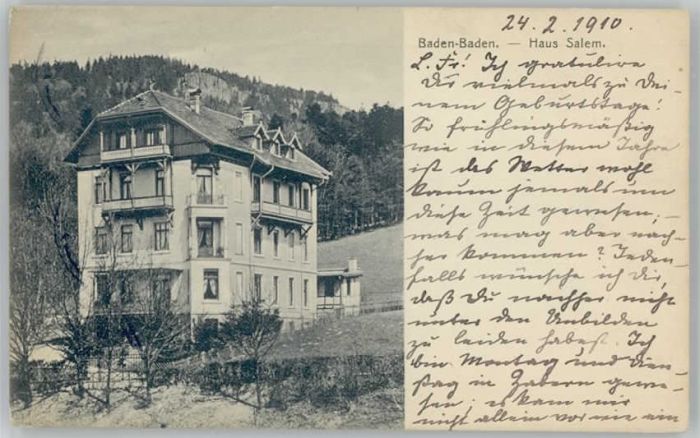 24. 2. 1910.
Baden-Baden. — Haus Salem.
L. Fr! Ich gratulire
Dir vielmals zu Dei-
nem Geburtstage!
So frühlingsmäßig
wie in diesem Jahre
ist das Wetter wohl
kaum jemals um
diese Zeit gewesen; —
was mag aber nach-
her kommen? Jeden-
falls wünsche ich dir,
daß Du nachher nicht
unter den Unbilden
zu leiden habest. Ich
bin Montag und Dien-
stag in Zabern gewe-
sen; es kam mir
nicht allein vor wie ein